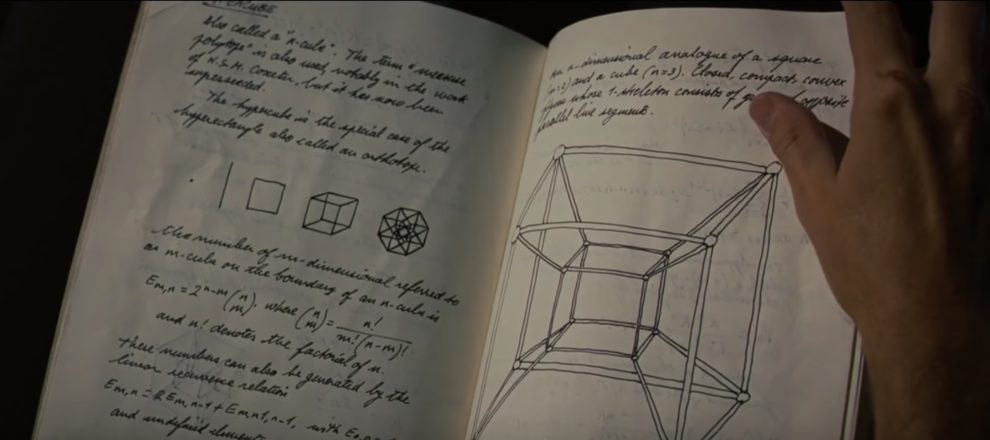 also called a "n-cube". The term "measure
polytope" is also used, notably in the work
of H.S.M. Coxeter, but it has now been
superseded.
The hypercube is the special case of the
hyperrectangle also called an orthotope.
the number of m-dimensional referred to
as m-cube on the boundary of an n-cube is
E_{m,n} = 2^{n-m} (n m), where (n m) = n! / m!(n-m)!
and n! denotes the factorial of n.
these numbers can also be generated by the
linear recurrence relation
E_{m,n} = 2E_{m,n-1} + E_{m+1,n-1}, with E
and undefined elements
n-dimensional analogue of a square
(n=2) and a cube (n=3). Closed, compact, convex
whose 1-skeleton consists of opposite
parallel line segments.